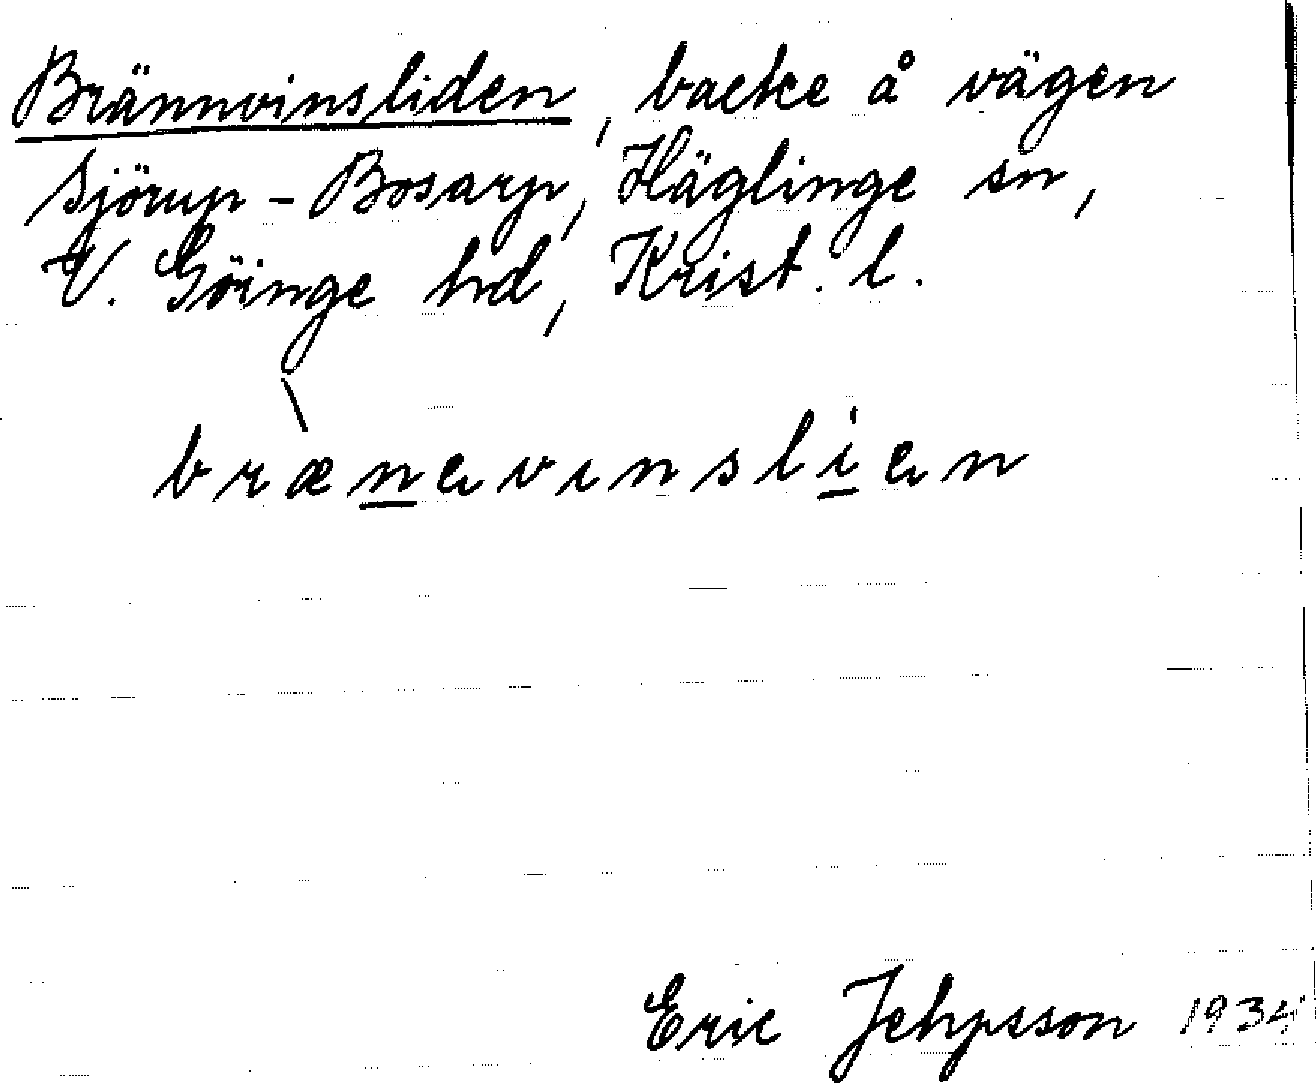 Brännvinsliden, backe å vägen
Sjörup - Bosarp, Häglinge sn,
V. Göinge hd, Krist. l.
brænevinslien
Eric Jehpsson 1934